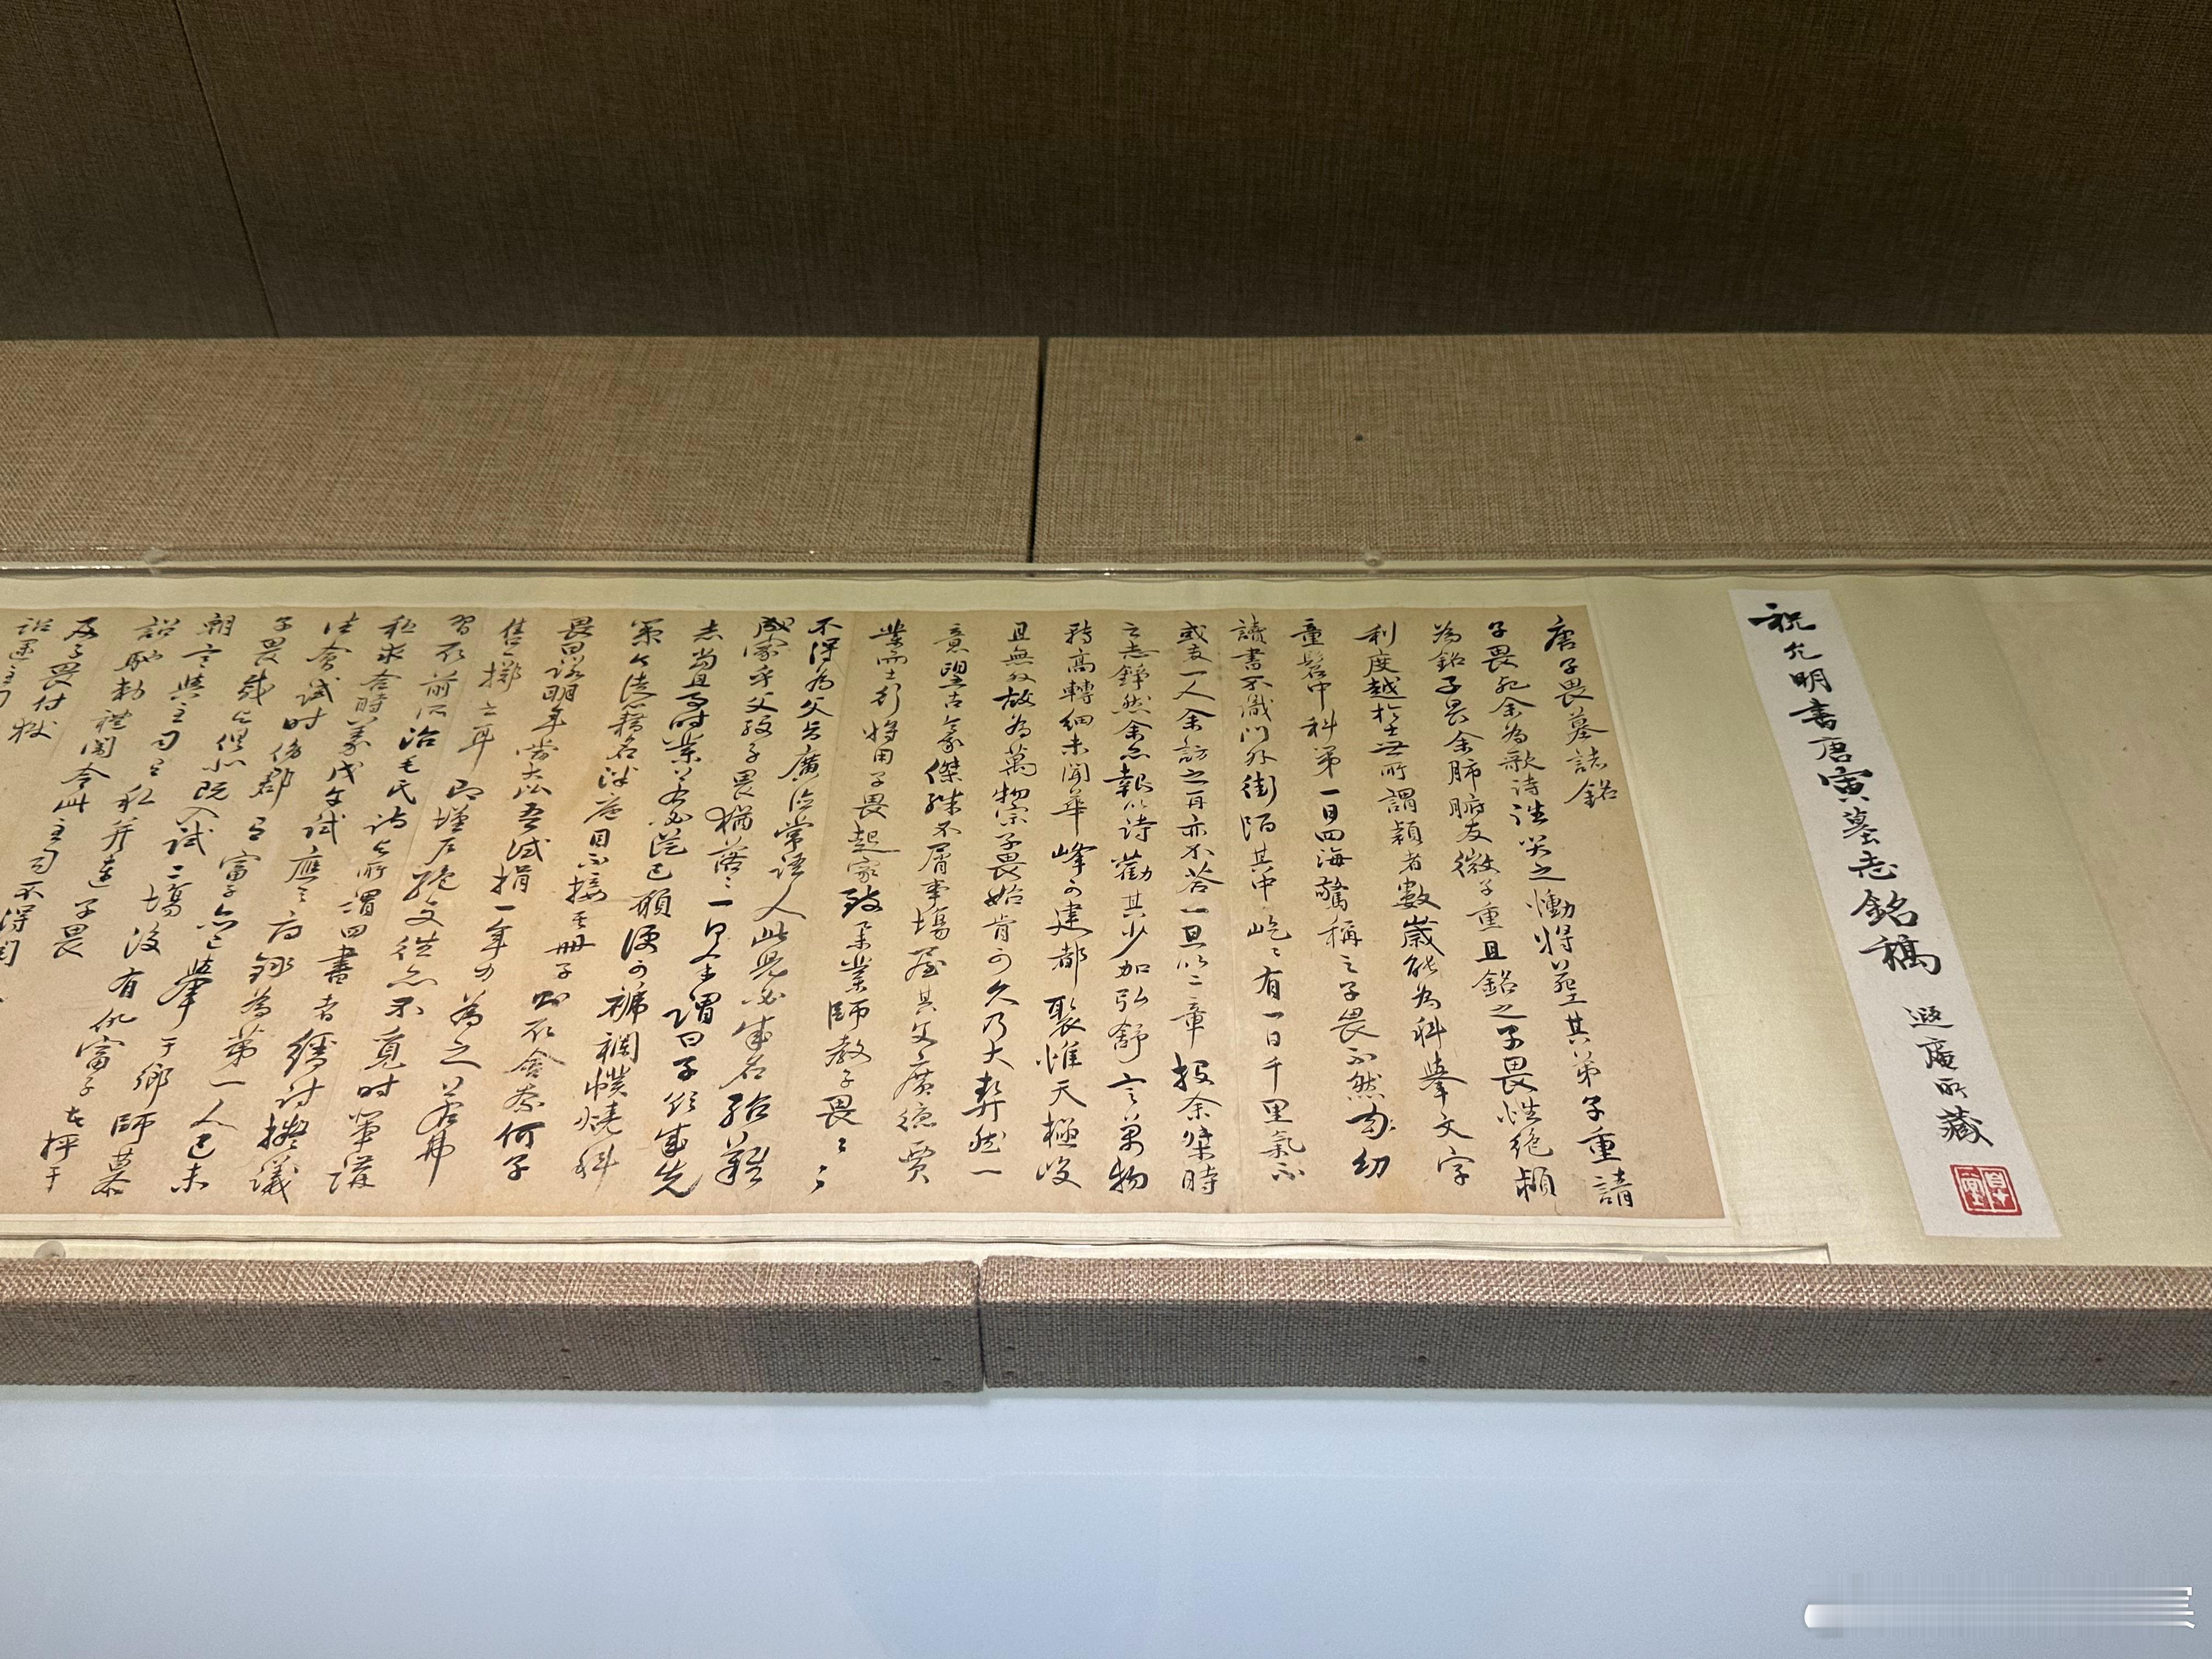 祝允明書唐寅墓志銘稿 遐庵所藏
唐子畏墓誌銘
子畏死余為歌詩往哭之慟將葬其弟子重請
為銘子畏余肺腑友微子重且銘之子畏性絕穎
利度越於士世所謂穎者數歲能為科舉文字
童髫中科第一日四海驚稱之子畏不然幼
讀書不識門外街陌其中屹屹有一日千里氣不
或友一人余訪之再亦不答一旦以二章投余傑時
之志錚然余亦報以詩勸其少加弘舒言萬物
轉高轉細未聞華峰可建都聚惟天極峻
且無外故為萬物宗子畏始肯可久乃大契然一
意望古豪傑殊不屑事場屋其父廣德賈
業而士行將用子畏起家致舉業師教子畏子畏
不得為父旨廣德常語人此兒必成名殆難
成家乎父歿子畏猶落落一日余謂曰子欲成先
志當且事時業若必從已願便可褫襴幞燒科
策今徒籍名泮廬目不接其冊子則取舍奈何子
畏曰諾明年當大比吾試捐一年力為之若弗
售一擲之耳即墐戶絕交往亦不覓時輩講
習取前所治毛氏詩與所謂四書者繙討擬議
祇求合時義戊午試應天府錄為第一人己未
往會試時傍郡有富子亦已舉于鄉師慕
子畏載與俱北既入試二場後有仇富子者抨于
朝言與主司有私并連子畏
詔馳敕禮闈令此主司不得閱